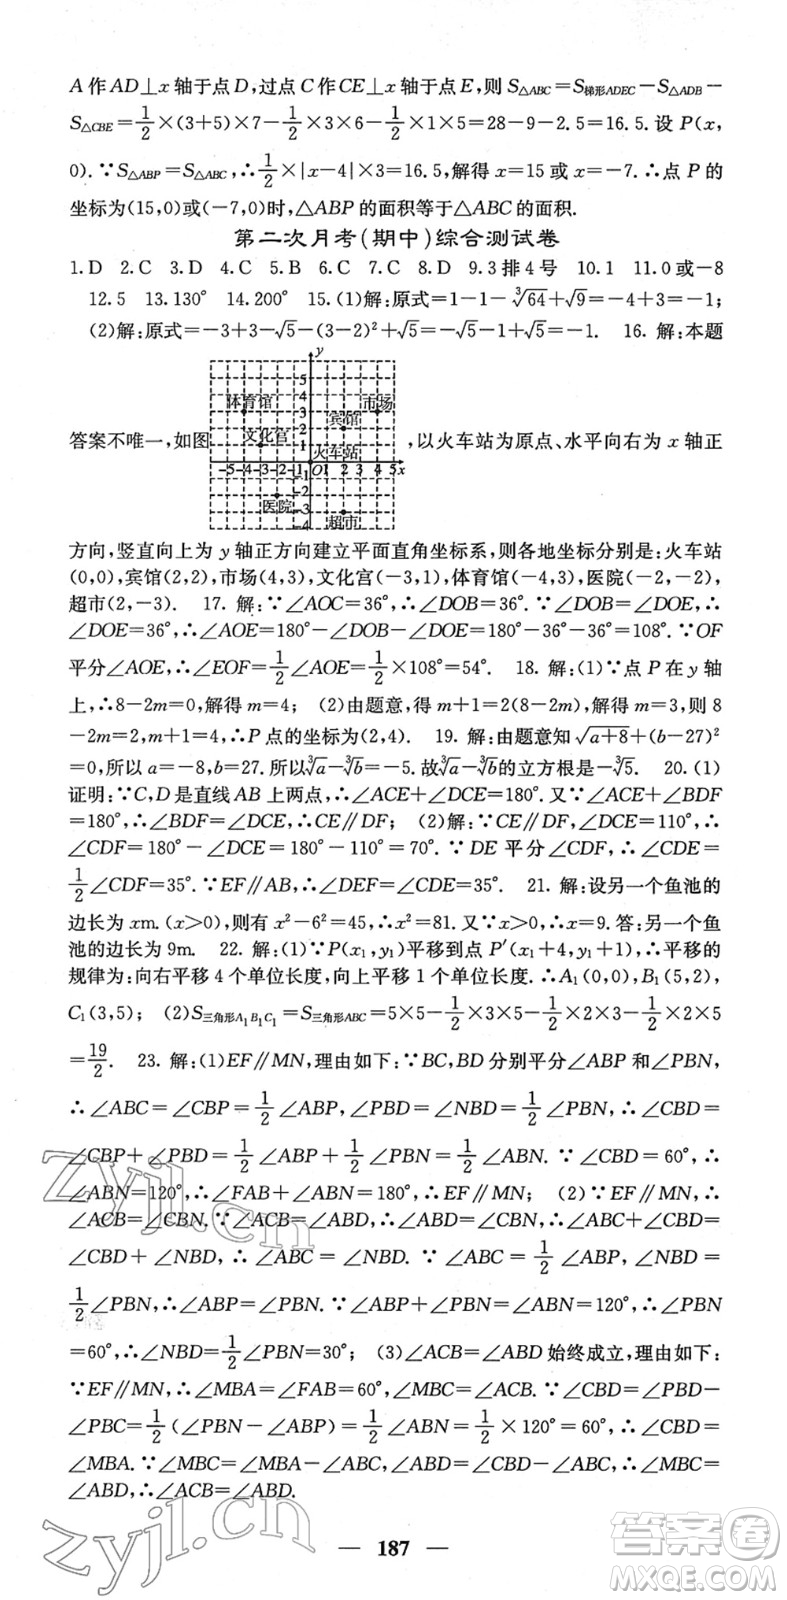 A 作 AD⊥x 轴于点 D,过点 C 作 CE⊥x 轴于点 E,则 S△ABC=S梯形ADEC−S△ADB−
S△CBE=1/2×(3+5)×7−1/2×3×6−1/2×1×5=28−9−2.5=16.5.设 P(x,
0).∵S△ABP=S△ABC,∴1/2×|x−4|×3=16.5,解得 x=15 或 x=−7.∴点 P 的
坐标为(15,0)或(−7,0)时,△ABP 的面积等于△ABC 的面积.
第二次月考(期中)综合测试卷
1.D 2.C 3.D 4.C 5.B 6.C 7.C 8.D 9.3 排 4 号 10.1 11.0 或−8
12.5 13.130° 14.200° 15.(1)解:原式=1−1−∛64+√9=−4+3=−1;
(2)解:原式=−3+3−√5−(3−2)²+√5=−√5−1+√5=−1. 16. 解:本题
答案不唯一,如图
y
5
4
体育馆 市场
3
宾馆
2
文化宫
1
火车站
−5−4−3−2−1 O 1 2 3 4 5 x
−1
−2
医院
−3
超市
−4
,以火车站为原点、水平向右为 x 轴正
方向,竖直向上为 y 轴正方向建立平面直角坐标系,则各地坐标分别是:火车站
(0,0),宾馆(2,2),市场(4,3),文化宫(−3,1),体育馆(−4,3),医院(−2,−2),
超市(2,−3). 17. 解:∵∠AOC=36°,∴∠DOB=36°.∵∠DOB=∠DOE,∴
∠DOE=36°,∴∠AOE=180°−∠DOB−∠DOE=180°−36°−36°=108°.∵OF
平分∠AOE,∴∠EOF=1/2∠AOE=1/2×108°=54°. 18. 解:(1)∵点 P 在 y 轴
上,∴8−2m=0,解得 m=4; (2)由题意,得 m+1=2(8−2m),解得 m=3,则 8
−2m=2,m+1=4,∴P 点的坐标为(2,4). 19. 解:由题意知√(a+8)+(b−27)²
=0,所以 a=−8,b=27.所以∛a−∛b=−5.故∛a−∛b的立方根是−∛5. 20.(1)
证明:∵C,D 是直线 AB 上两点,∴∠ACE+∠DCE=180°.又∵∠ACE+∠BDF
=180°,∴∠BDF=∠DCE,∴CE∥DF; (2)解:∵CE∥DF,∠DCE=110°,∴
∠CDF=180°−∠DCE=180°−110°=70°.∵DE 平分∠CDF,∴∠CDE=
1/2∠CDF=35°.∵EF∥AB,∴∠DEF=∠CDE=35°. 21. 解:设另一个鱼池的
边长为 xm.(x>0),则有 x²−6²=45,∴x²=81.又∵x>0,∴x=9.答:另一个鱼
池的边长为 9m. 22. 解:(1)∵P(x₁,y₁)平移到点 P′(x₁+4,y₁+1),∴平移的
规律为:向右平移 4 个单位长度,向上平移 1 个单位长度.∴A₁(0,0),B₁(5,2),
C₁(3,5); (2)S三角形A₁B₁C₁=S三角形ABC=5×5−1/2×3×5−1/2×2×3−1/2×2×5
=19/2. 23. 解:(1)EF∥MN,理由如下:∵BC,BD 分别平分∠ABP 和∠PBN,
∴∠ABC=∠CBP=1/2∠ABP,∠PBD=∠NBD=1/2∠PBN,∴∠CBD=
∠CBP+∠PBD=1/2∠ABP+1/2∠PBN=1/2∠ABN.∵∠CBD=60°,∴
∠ABN=120°,∴∠FAB+∠ABN=180°,∴EF∥MN; (2)∵EF∥MN,∴
∠ACB=∠CBN.∵∠ACB=∠ABD,∴∠CBN=∠ABD,∴∠ABC+∠CBD=
∠CBD+∠NBD,∴∠ABC=∠NBD.∵∠ABC=1/2∠ABP,∠NBD=
1/2∠PBN,∴∠ABP=∠PBN.∵∠ABP+∠PBN=∠ABN=120°,∴∠PBN
=60°,∴∠NBD=1/2∠PBN=30°; (3)∠ACB=∠ABD 始终成立,理由如下:
∵EF∥MN,∴∠MBA=∠FAB=60°,∠MBC=∠ACB.∵∠CBD=∠PBD−
∠PBC=1/2(∠PBN−∠ABP)=1/2∠ABN=1/2×120°=60°,∴∠CBD=
∠MBA.∵∠MBC=∠MBA−∠ABC,∠ABD=∠CBD−∠ABC,∴∠MBC=
∠ABD,∴∠ACB=∠ABD.
— 187 —
zyjl.cn
zyjl.cn
答案圈
MXQE.COM